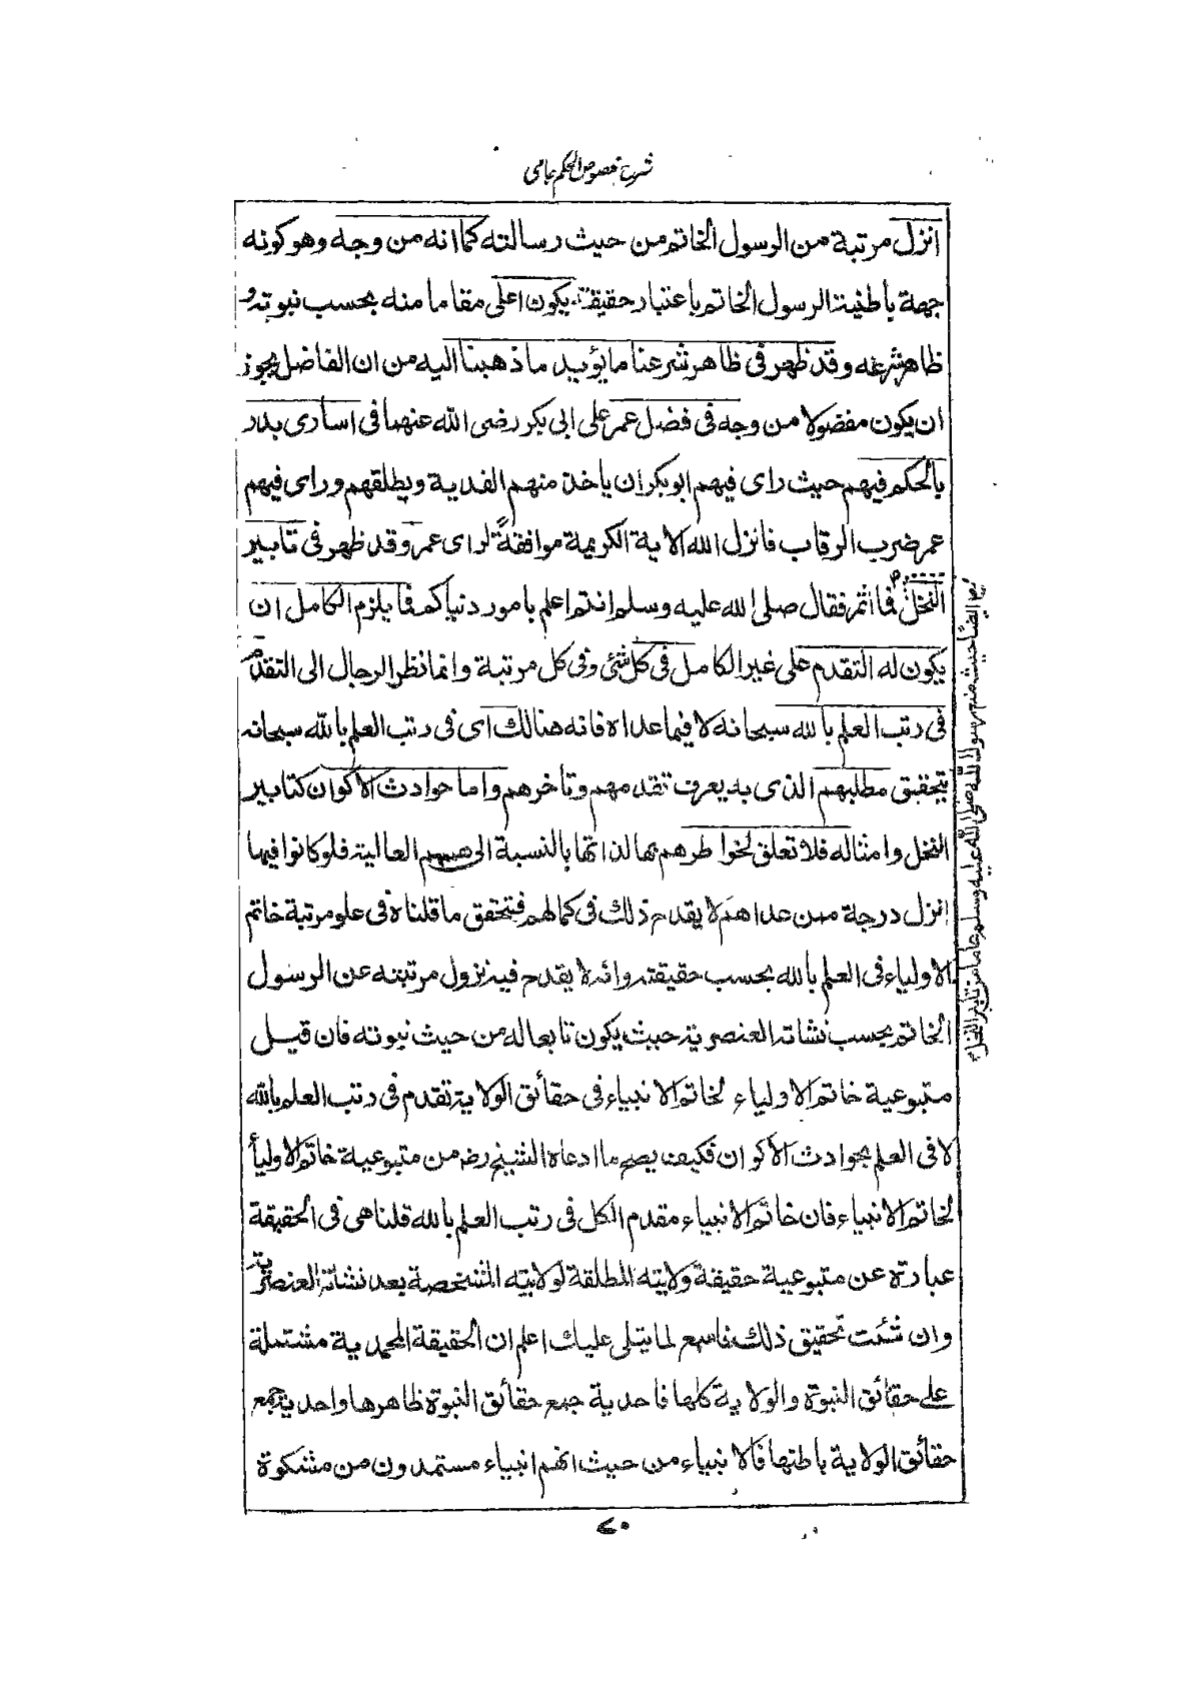 شرح فصوص الحكم جامى
انزل مرتبة من الرسول الخاتم من حيث رسالته كما انه من وجه وهو كونه
جهة باطنية الرسول الخاتم باعتبار حقيقته يكون اعلى مقاما منه بحسب نبوته و
ظاهر شرعه وقد ظهر فى ظاهر شرعنا ما يؤيد ما ذهبنا اليه من ان الفاضل يجوز
ان يكون مفضولا من وجه فى فضل عمر على ابى بكر رضى الله عنهما فى اسارى بدر
بالحكم فيهم حيث راى فيهم ابو بكر ان ياخذ منهم الفدية ويطلقهم وراى فيهم
عمر ضرب الرقاب فانزل الله الاية الكريمة موافقةً لراى عمر وقد ظهر فى تابير
النخل فما اثمر فقال صلى الله عليه وسلم انتم اعلم بامور دنياكم فما يلزم الكامل ان
يكون له التقدم على غير الكامل فى كل شئ وفى كل مرتبة وانما نظر الرجال الى التقدم
فى رتب العلم بالله سبحانه لا فيما عداه فانه هنالك اى فى رتب العلم بالله سبحانه
يتحقيق مطلبهم الذى به يعرف تقدمهم وتاخرهم واما حوادث الاكوان كتابير
النخل وامثاله فلا تعلق لخواطرهم بها لذاتها بالنسبة الى هممهم العالية فلو كانوا فيها
انزل درجة ممن عداهم لا يقدح ذلك فى كمالهم فتحقق ما قلناه فى علو مرتبة خاتم
الاولياء فى العلم بالله بحسب حقيقته وانه لا يقدح فيه نزول مرتبته عن الرسول
الخاتم بحسب نشاته العنصرية حيث يكون تابعا له من حيث نبوته فان قيل
متبوعية خاتم الاولياء لخاتم الانبياء فى حقائق الولاية تقدم فى رتب العلم بالله
لا فى العلم بحوادث الاكوان فكيف يصح ما ادعاه الشيخ رضه من متبوعية خاتم الاوليأ
لخاتم الانبياء فان خاتم الانبياء مقدم الكل فى رتب العلم بالله قلنا هى فى الحقيقة
عبارة عن متبوعية حقيقة ولايته المطلقة لولايته المشخصة بعد نشاته العنصرية
وان شئت تحقيق ذلك فاسمع لما يتلى عليك اعلم ان الحقيقة المحمدية مشتملة
على حقائق النبوة والولاية كلها فاحدية جمع حقائق النبوة ظاهرها واحدية جمع
حقائق الولاية باطنها فالانبياء من حيث انهم انبياء مستمدون من مشكوة
ايضا حيث منع رسول الله صلى الله عليه وسلم عاما من تابير النخل